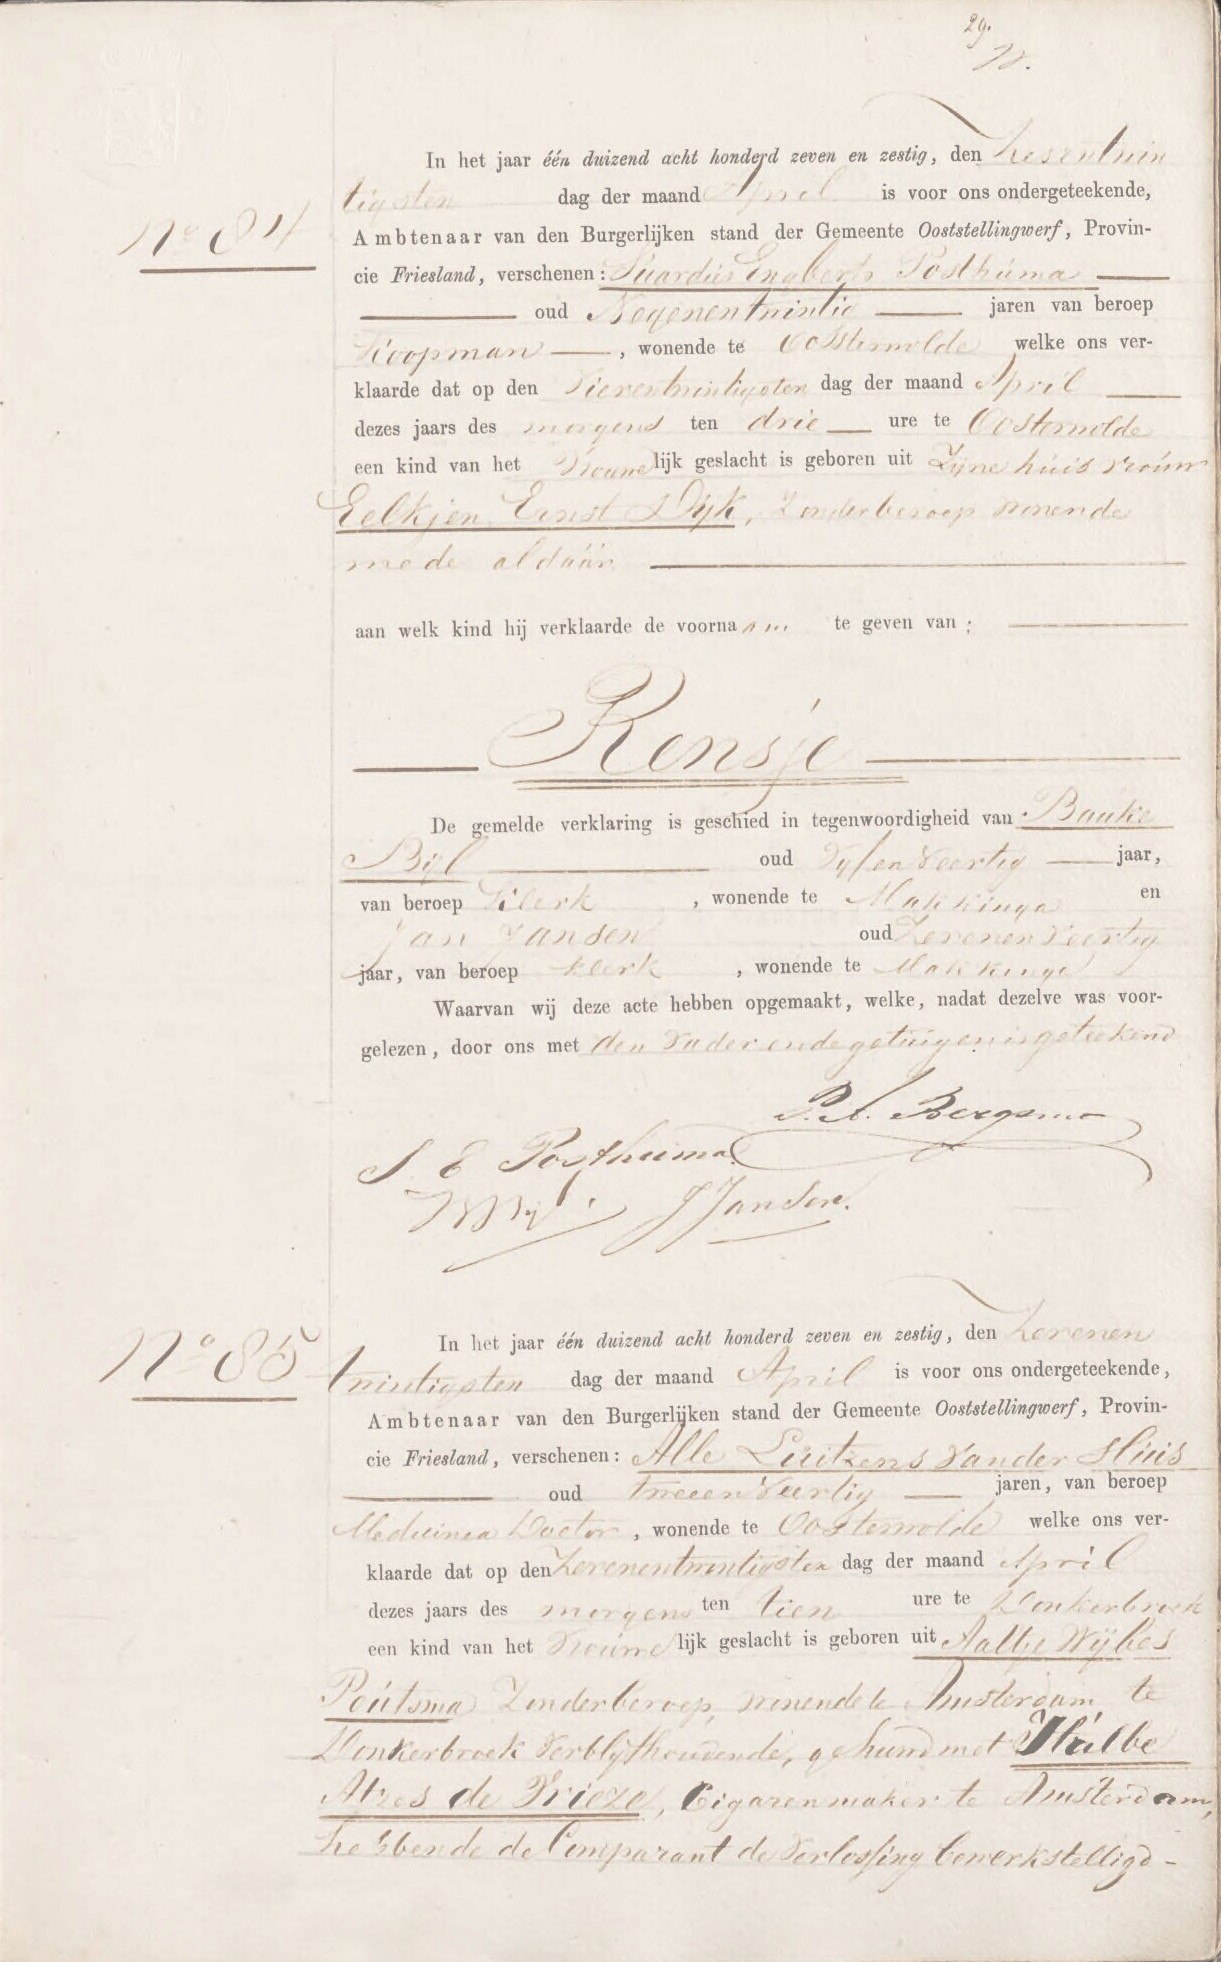 29.
No 84
In het jaar één duizend acht honderd zeven en zestig, den Zesentwin
tigsten dag der maand April is voor ons ondergeteekende,
Ambtenaar van den Burgerlijken stand der Gemeente Ooststellingwerf, Provin-
cie Friesland, verschenen: Suardus Engberts Posthuma
oud Negenentwintig jaren van beroep
Koopman, wonende te Oosterwolde welke ons ver-
klaarde dat op den Vierentwintigsten dag der maand April
dezes jaars des morgens ten drie ure te Oosterwolde
een kind van het Vrouwelijk geslacht is geboren uit Zijne huisvrouw
Eelkjen Ernst Dijk, Zonder beroep wonende
mede aldaar
aan welk kind hij verklaarde de voornaam te geven van:
Rensje
De gemelde verklaring is geschied in tegenwoordigheid van Bauke
Bijl oud Vijf en Veertig jaar,
van beroep Klerk, wonende te Makkinga en
Jan Jansen oud Zevenen Veertig
jaar, van beroep klerk, wonende te Makkinga
Waarvan wij deze acte hebben opgemaakt, welke, nadat dezelve was voor-
gelezen, door ons met den Vader en de getuigen is geteekend
P. A. Bergsma
S E Posthuma
B Bijl J Jansen.
No 85
In het jaar één duizend acht honderd zeven en zestig, den Zevenen
twintigsten dag der maand April is voor ons ondergeteekende,
Ambtenaar van den Burgerlijken stand der Gemeente Ooststellingwerf, Provin-
cie Friesland, verschenen: Alle Luitzens van der Sluis
oud tweeen Veertig jaren, van beroep
Medicinea Doctor, wonende te Oosterwolde welke ons ver-
klaarde dat op den Zevenentwintigsten dag der maand April
dezes jaars des morgens ten tien ure te Donkerbroek
een kind van het Vrouwelijk geslacht is geboren uit Aaltje Wijbes
Poutsma Zonder beroep, wonende te Amsterdam te
Donkerbroek Verblijfhoudende, gehuwd met Halbe
Atzes de Vrieze, Cigarenmaker te Amsterdam,
hebbende de Comparant de Verlossing bewerkstelligd -